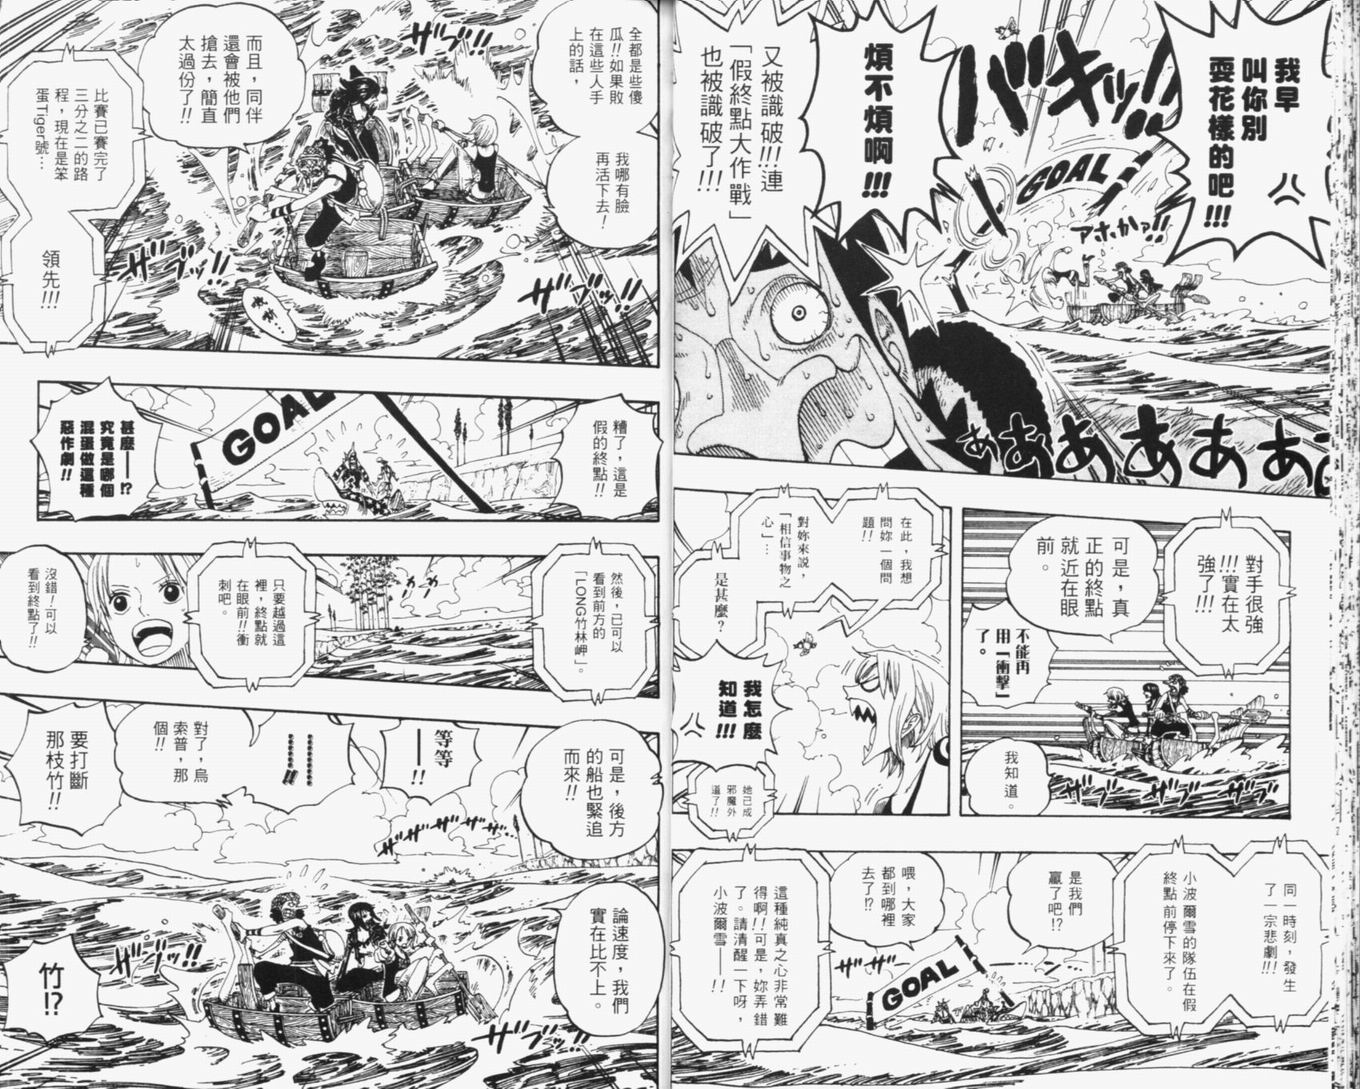 我早
叫你別
耍花樣的吧!!!
バキッ!!
GOAL
アホかっ!!
煩不煩啊!!!
又被識破!!!連
「假終點大作戰」
也被識破了!!!
ああああああ
對手很強
!!!實在太
強了!!!
可是,真
正的終點
就近在眼
前。
不能再
用「衝擊」
了。
我知道。
ザザザッ
在此,我想
問妳一個問
題!!
對妳來說,
「相信事物之
心」…
是甚麼?
我怎麼
知道!!!
她已成
邪魔外
道了!!
同一時刻,發生
了一宗悲劇!!!
小波爾雪的隊伍在假
終點前停下來了。
是我們
贏了吧!?
喂,大家
都到哪裡
去了!?
GOAL
ザザザ
這種純真之心非常難
得啊!!可是,妳弄錯
了。請清醒一下呀,
小波爾雪——!!
全都是些傻
瓜!!如果敗
在這些人手
上的話,
我哪有臉
再活下去!
而且,同伴
還會被他們
搶去,簡直
太過份了!!
比賽已賽完了
三分之二的路
程,現在是笨
蛋Tiger號…
領先!!!
ザザッ!!
ザブッ!!
ザブッ!!
ザザッ!!
糟了,這是
假的終點!!
GOAL
甚麼——!?
究竟是哪個
混蛋做這種
惡作劇!!
然後,已可以
看到前方的
「LONG竹林岬」。
わわわ
只要越過這
裡,終點就
在眼前!!衝
刺吧。
沒錯!可以
看到終點了!!
可是,後方
的船也緊追
而來!!
等等
——!!
………!!
對了,烏
索普,那
個!!
要打斷
那枝竹!!
ザザザザザ
論速度,我們
實在比不上。
竹!?